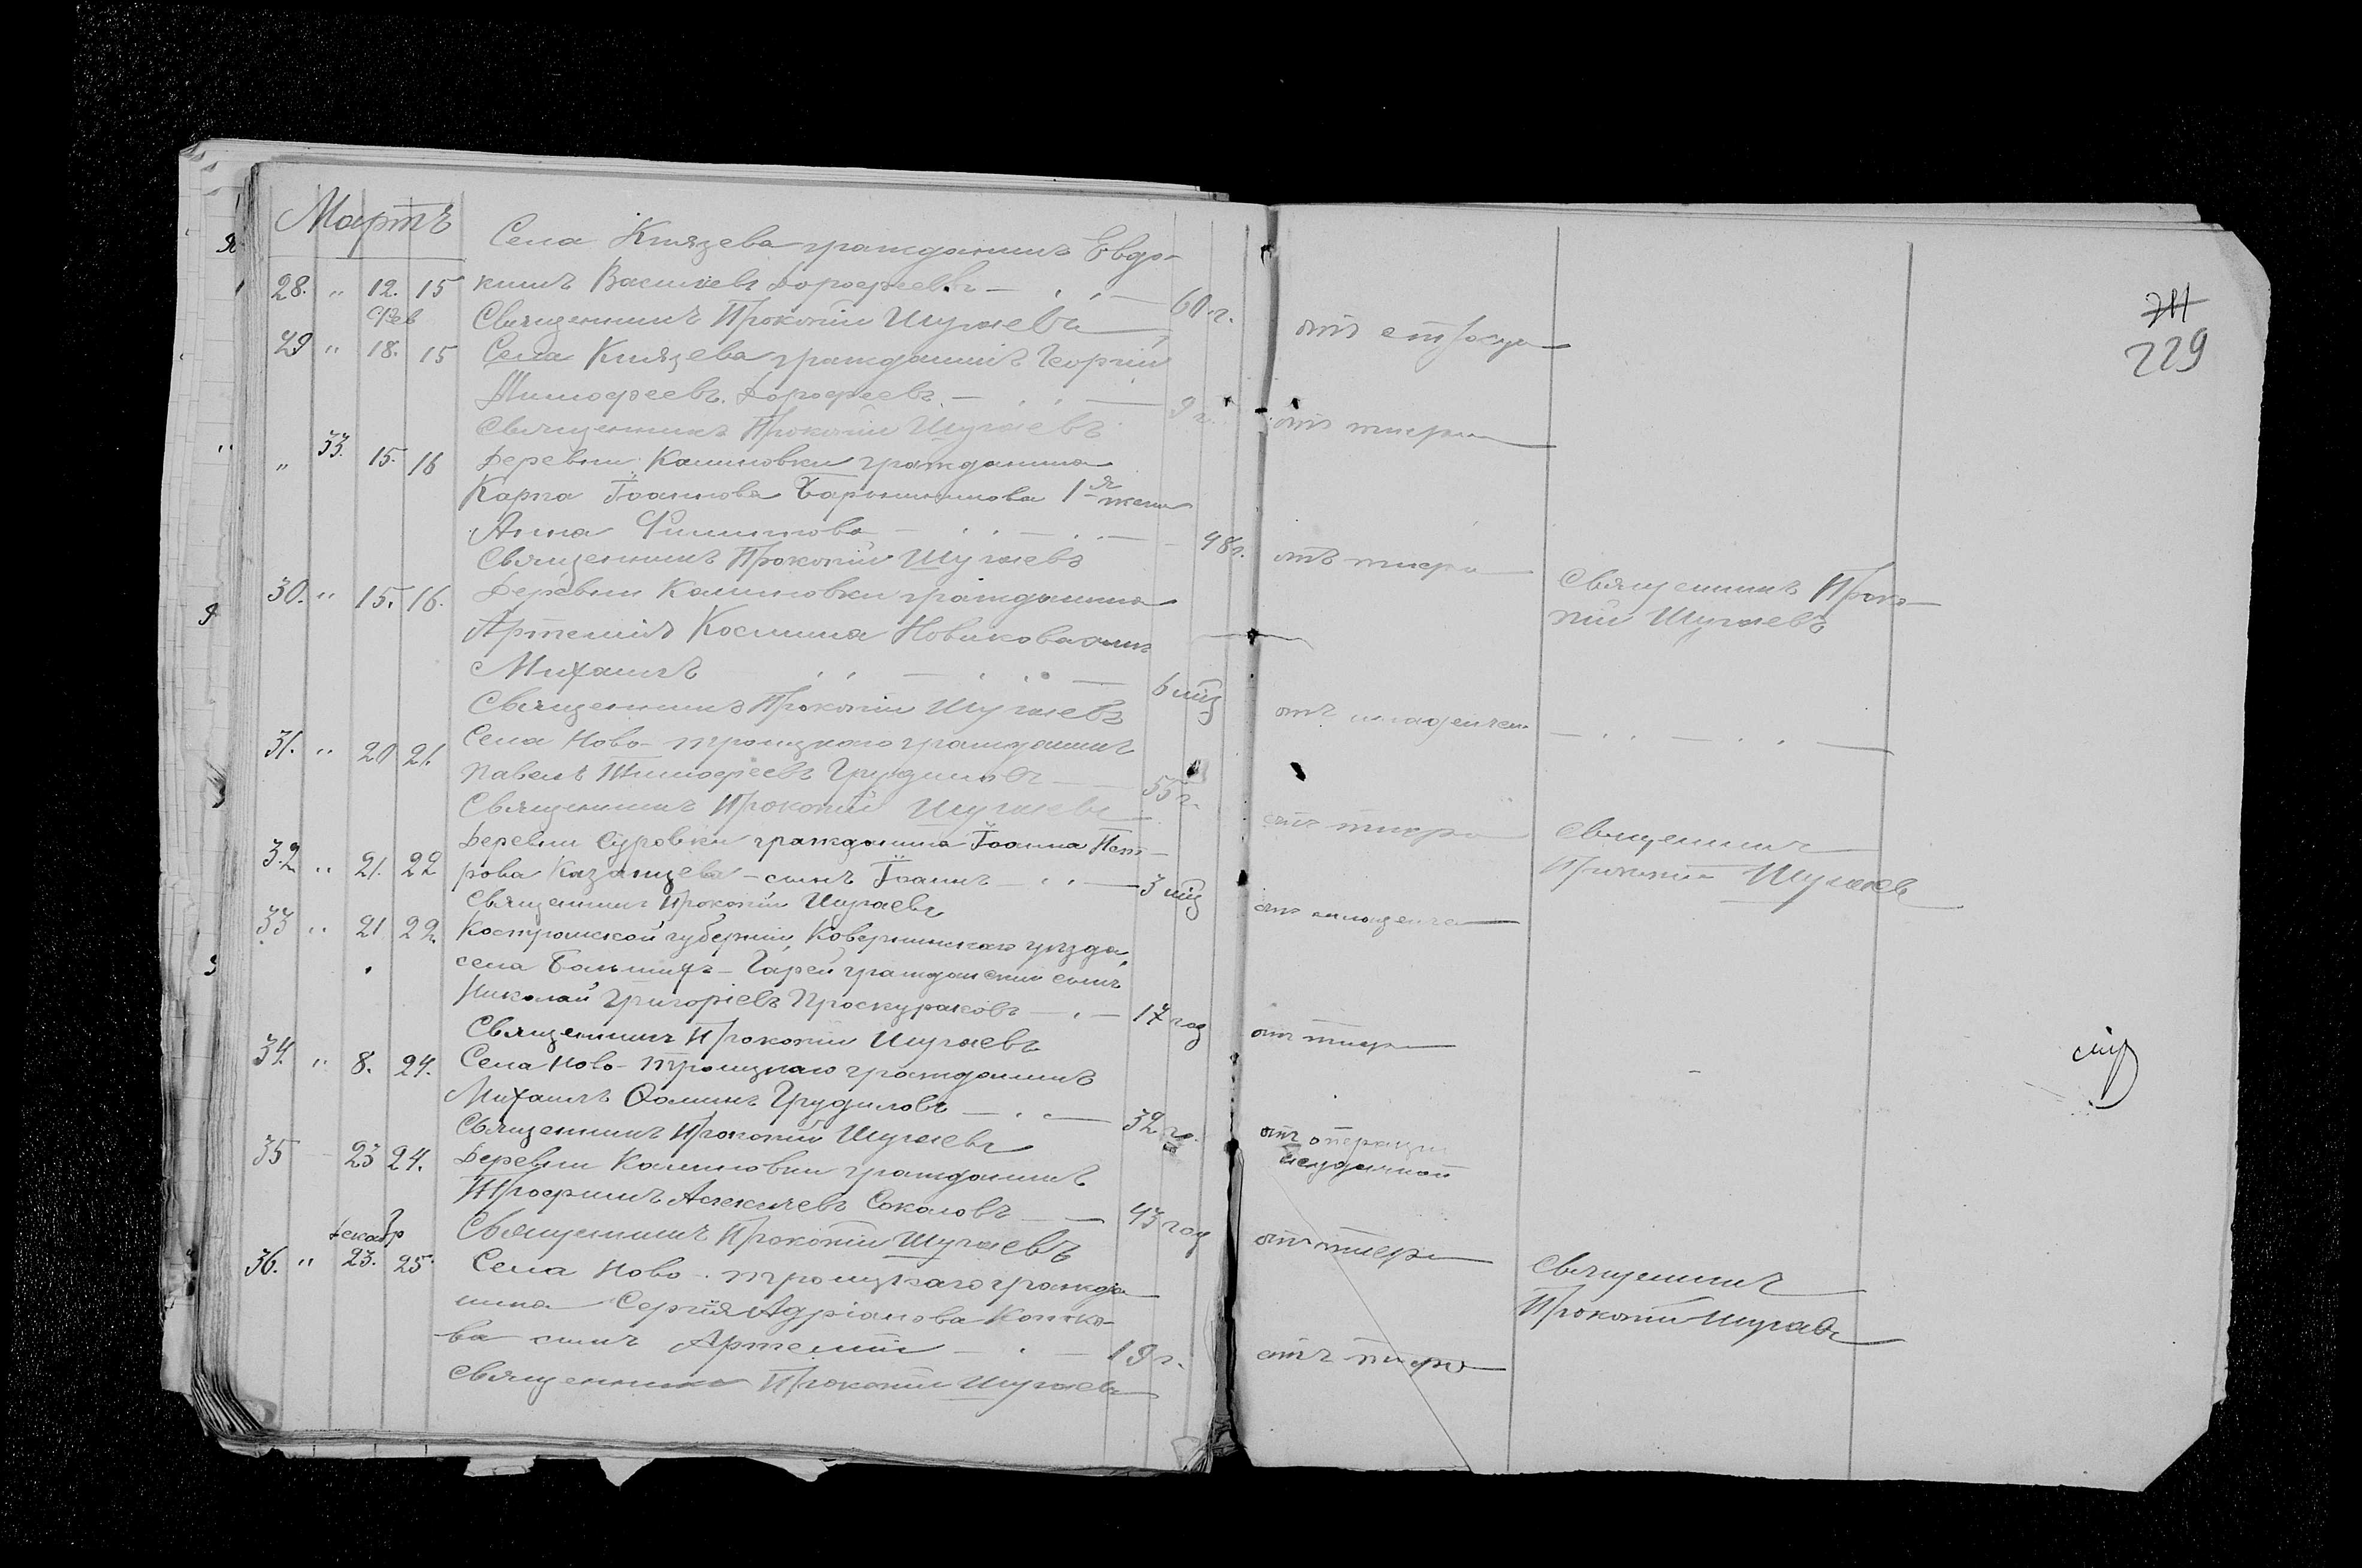 Мартъ
Села Князева гражданинъ Евдо-
28. " 12. 15 кимъ Васильевъ Дорофеевъ — 60 г. отъ
Фев Священникъ Прокопій Шугаевъ
29 " 18. 15 Села Князева гражданинъ Георгій
Тимофеевъ Дорофеевъ — 9 г. отъ тифа
Священникъ Прокопій Шугаевъ
" 33. 15. 16 Деревни Калиновки гражданина
Карпа Іоаннова 1я жена
Анна Филиппова — 48 г. отъ тифа
Священникъ Прокопій Шугаевъ Священникъ Проко-
30. " 15. 16. Деревни Калиновки гражданина пій Шугаевъ
Артемія Космина Новикова сынъ
Михаилъ — 6 мѣц отъ младенчес
Священникъ Прокопій Шугаевъ
31. " 20 21. Села Ново-троицкаго гражданинъ
Павелъ Тимофеевъ Грудиновъ — 55 г. отъ тифа
Священникъ Прокопій Шугаевъ Священникъ
Деревни Суровки гражданина Іоанна Пет- Прокопій Шугаевъ
32 " 21. 22 рова Казанцева — сынъ Іоаннъ — 3 мѣц отъ младенче
Священникъ Прокопій Шугаевъ
33 " 21 22. Костромской губерніи, Ковернинскаго уѣзда,
села Большихъ-Гарей гражданскій сынъ
Николай Григоріевъ Проскуряковъ — 17 год отъ тифа
Священникъ Прокопій Шугаевъ
34. " 8. 24. Села Ново-троицкаго гражданинъ
Михаилъ Ѳоминъ Грудиловъ — 32 г. отъ операціи
Священникъ Прокопій Шугаевъ неудачной
35 23 24. Деревни Калиновки гражданинъ
Трофимъ Алексіевъ Соколовъ — 43 год отъ тифа
Декабр Священникъ Прокопій Шугаевъ Священникъ
36. " 23. 25. Села Ново-троицкаго гражда- Прокопій Шугаевъ
нина Сергія Адріанова
ва сынъ Артемій — 19 г. отъ тифа
Священникъ Прокопій Шугаевъ
229